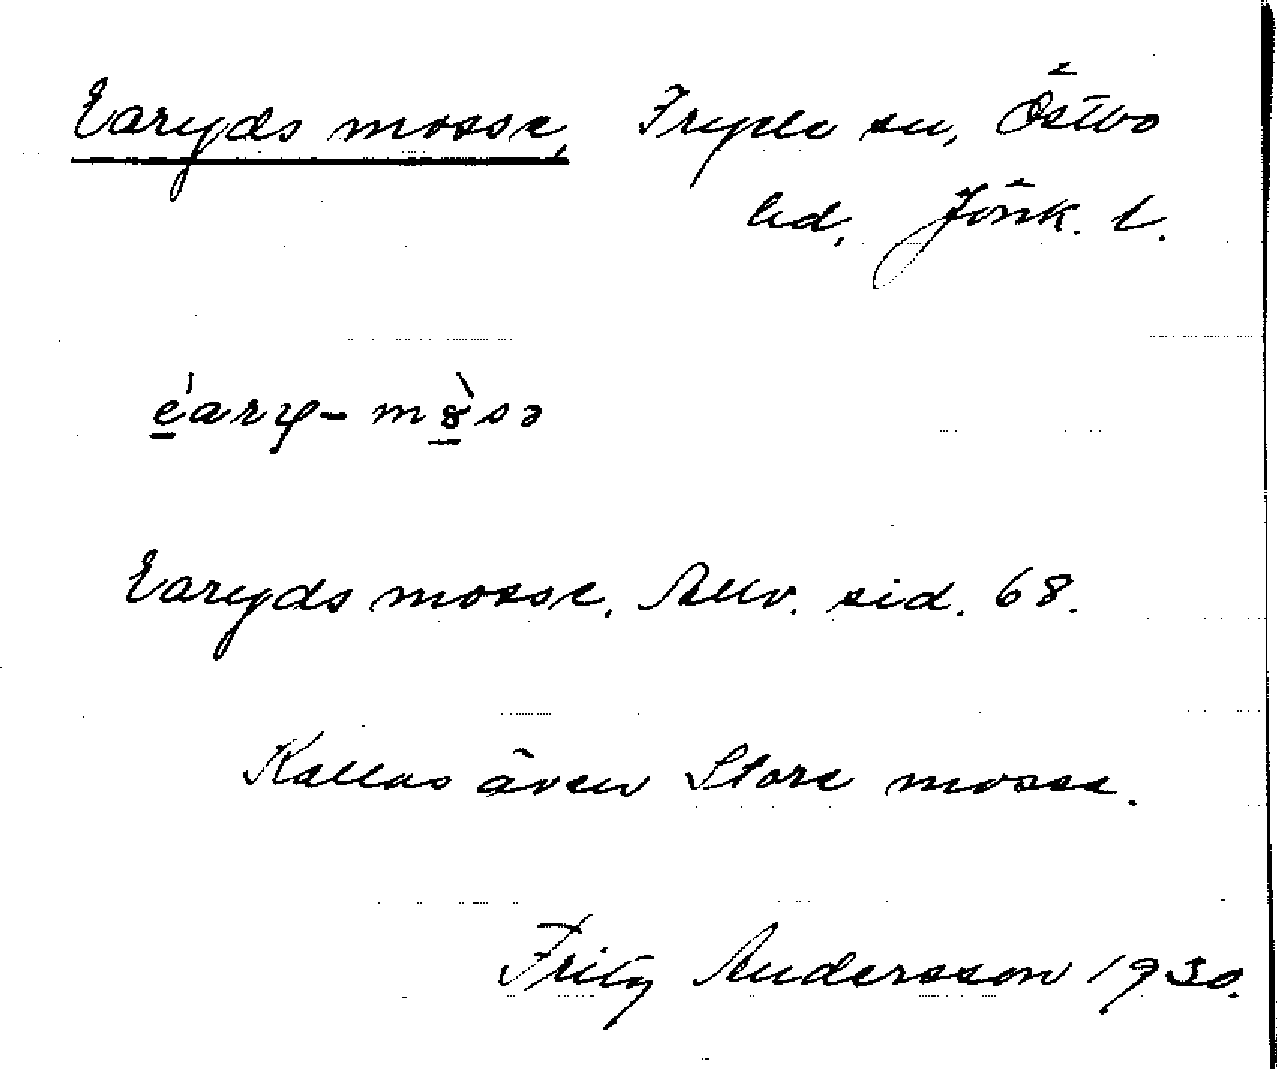 Earyds mosse, Fryele sn, Östbo
hd, Jönk. l.
Earyds mosse. Anv. sid. 68.
Kallas även Store mosse.
Fritz Andersson 1930.